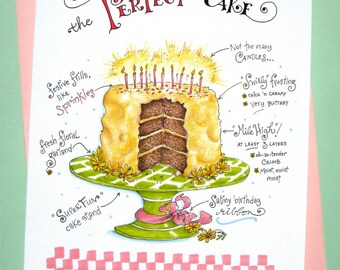 the PERFECT CAKE
Not too many
CANDLES...
festive frills,
like
Sprinkles
"Swirly frosting
• rich 'n creamy
• very BUTTERY
fresh floral
garland
"Mile High"!
AT LEAST 3 LAYERS
CRUMB
• Moist, moist
moist
"SUPER FUN"
cake stand
Satiny birthday
ribbon